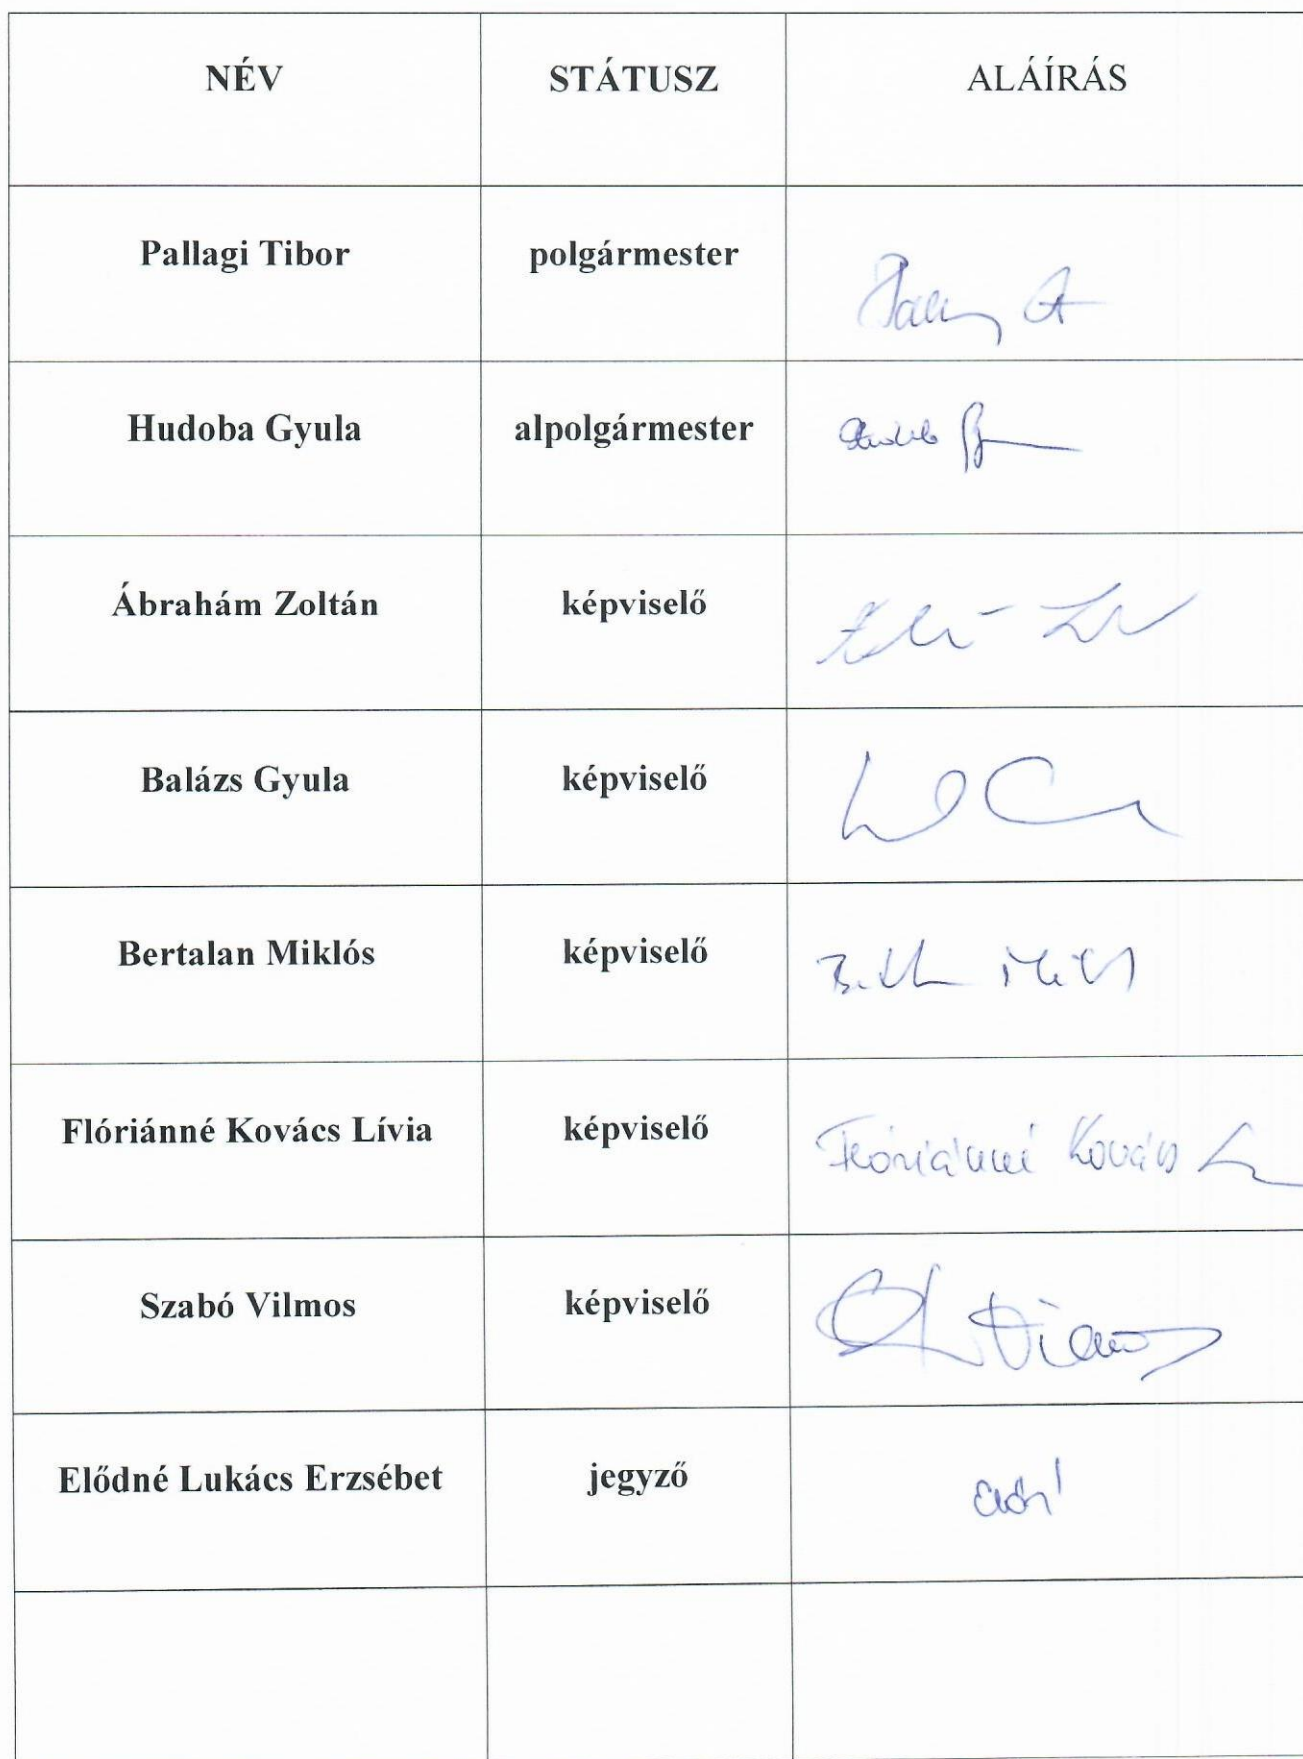 NÉV STÁTUSZ ALÁÍRÁS
Pallagi Tibor polgármester
Hudoba Gyula alpolgármester
Ábrahám Zoltán képviselő
Balázs Gyula képviselő
Bertalan Miklós képviselő
Flóriánné Kovács Lívia képviselő Flóriánné Kovács
Szabó Vilmos képviselő
Elődné Lukács Erzsébet jegyző